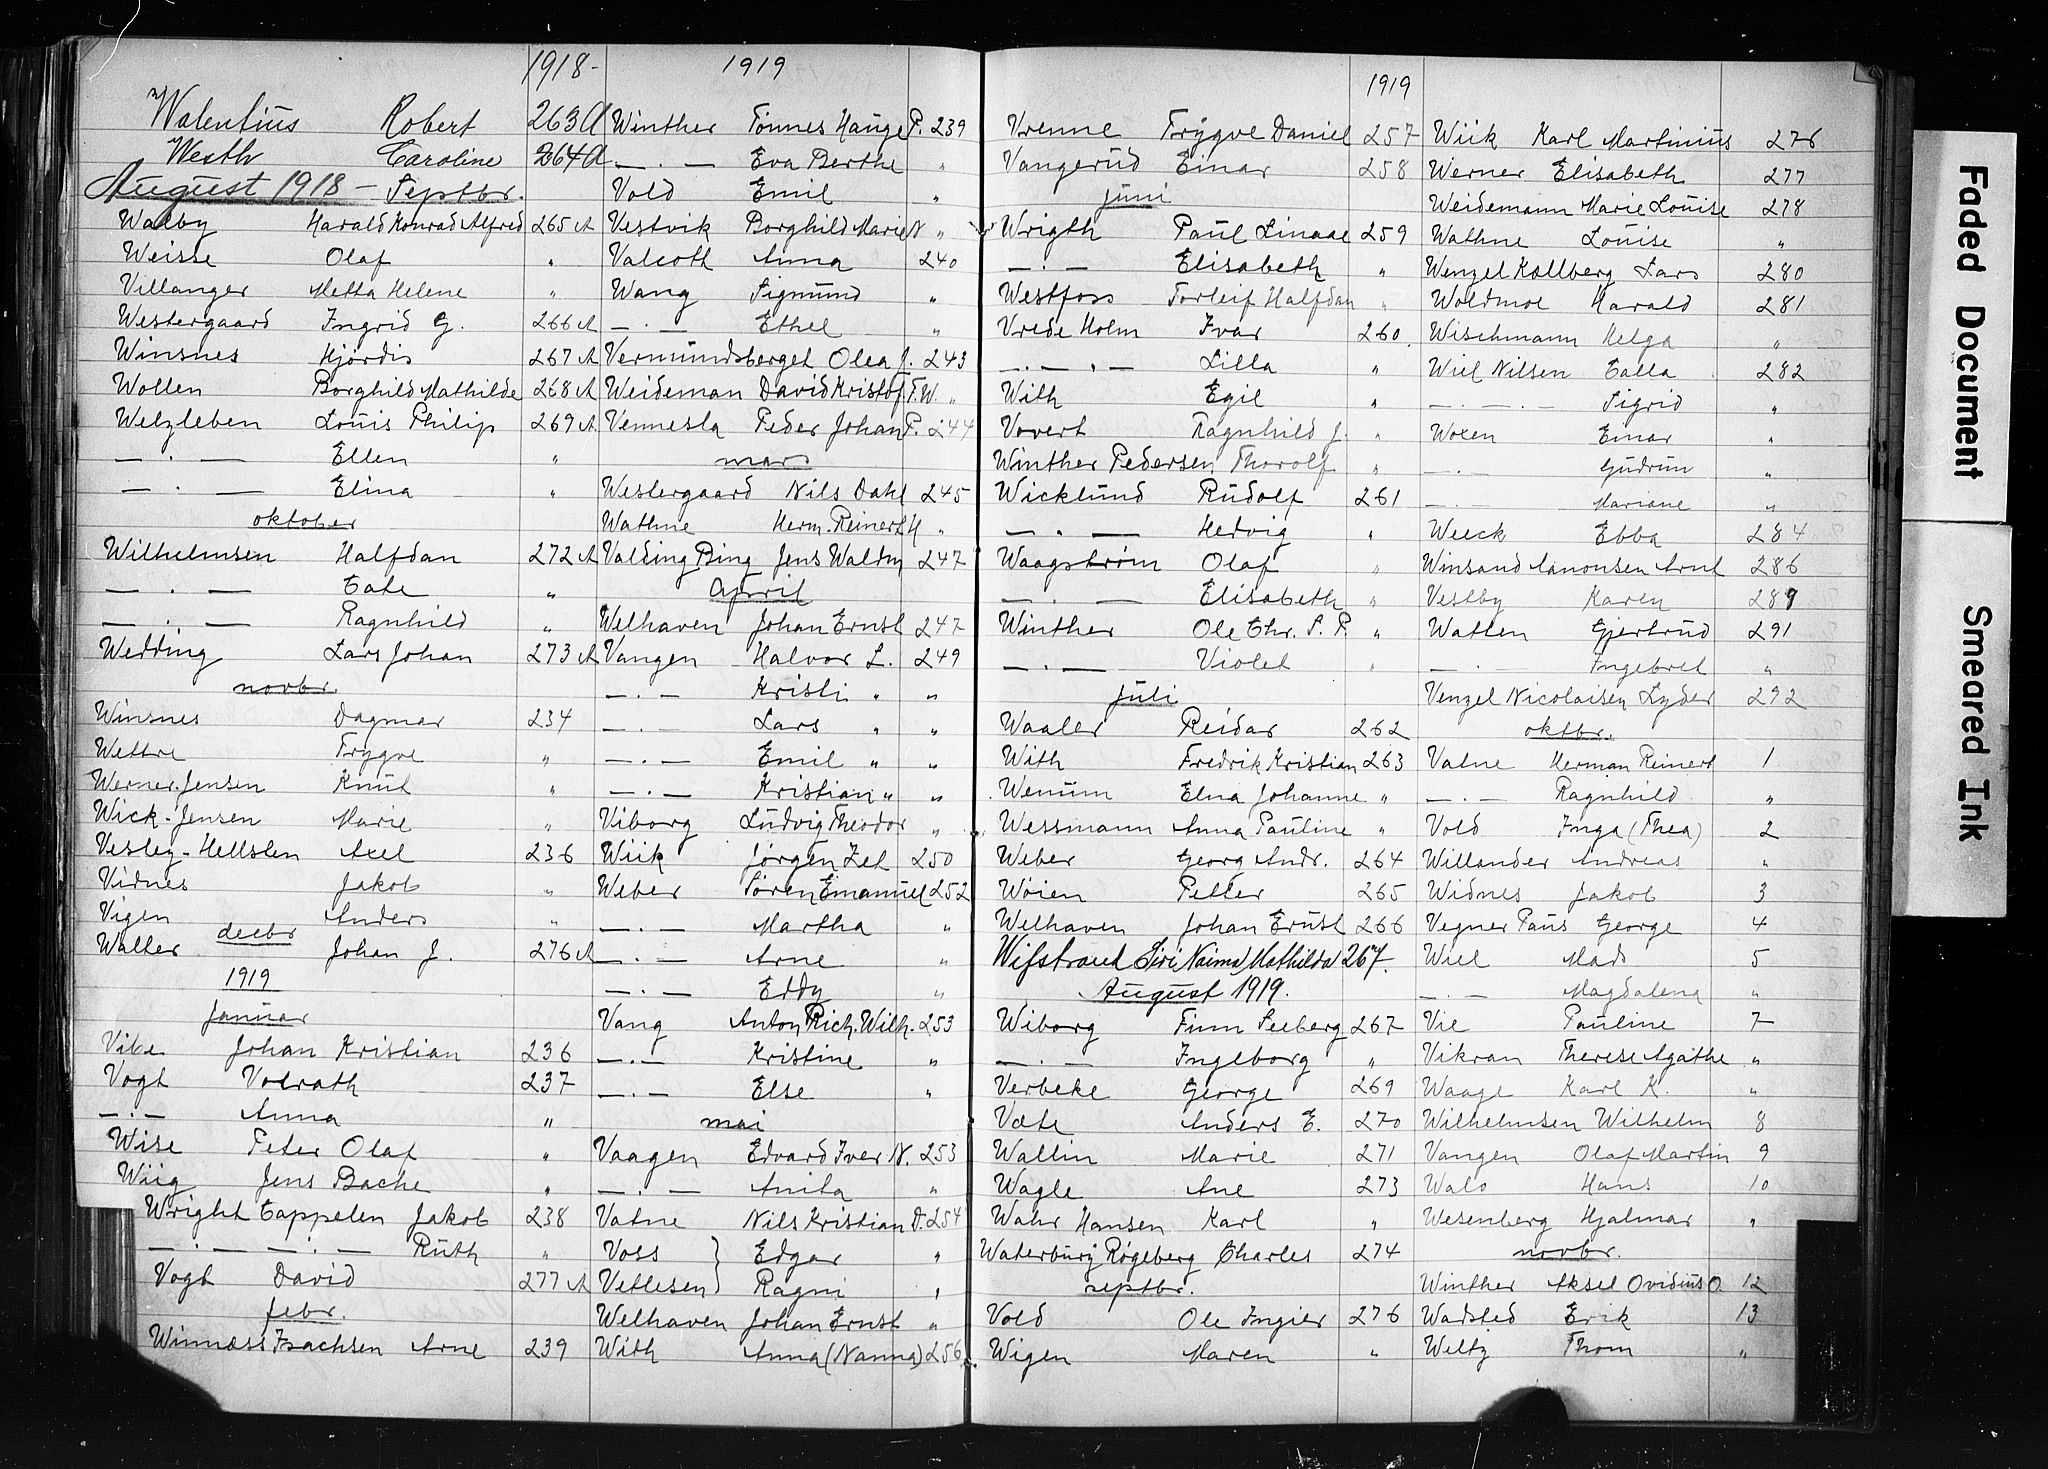 1918-
Walentius Robert 263A
Westh Caroline 264A
August 1918 - Septbr.
Walby Harald Konrad Alfred 265A
Weisse Olaf "
Villanger Metta Helene "
Westergaard Ingrid G. 266A
Winsnes Hjördis 267A
Wollen Borghild Mathilde 268A
Welzleben Louis Philip 269A
— . — Ellen "
— . — Elina "
oktober
Wilhelmsen Halfdan 272A
— . — Cate "
— . — Ragnhild "
Wedding Lars Johan 273A
novbr.
Winsnes Dagmar 234
Wettre Trygve "
Werner-Jensen Knut "
Wick-Jensen Marie "
Vesley-Hellsten Axel 236
Vidnes Jakob "
Vigen Anders "
decbr
Walter Johan J. 276A
1919
Januar
Vibe Johan Kristian 236
Vogt Volrath 237
— . — Anna "
Wise Peter Olaf "
Wiig Jens Bache "
Wright Cappelen Jakob 238
— . — — . — Ruth "
Vogt David 277A
febr.
Winnæss Isachsen Arne 239
1919
Winther Tönnes Hauge P. 239
— . — Eva Berthe "
Vold Emil "
Vestvik Borghild Marie N "
Valeoth Anna 240
Wang Sigmund "
— . — Ethel "
Vermundsberget Olea J. 243
Weideman David Kristof. F.W. "
Vennesla Peder Johan P. 244
mars
Westergaard Nils Dahl 245
Wathne Herm. Reinert H "
Valding Bing Jens Waldm 247
April
Welhaven Johan Ernst 247
Vangen Halvor L. 249
— . — Kristi " "
— . — Lars " "
— . — Emil " "
— . — Kristian " "
Viborg Ludvig Theodor "
Wiik Jörgen Zet 250
Weber Sören Emanuel 252
— . — Martha "
— . — Arne "
— . — Eddy "
Vang Anton Rich. Wilh. 253
— . — Kristine "
— . — Else "
mai
Vaagen Edvard Iver N. 253
— . — Anita "
Vatne Nils Kristian D. 254
Voss } Edgar "
Vetlesen } Ragni "
Welhaven Johan Ernst "
With Anna (Nanna) 256
1919
Vrenne Trygve Daniel 257
Vangerud Einar 258
juni
Wrigth Paul Linaae 259
— . — Elisabeth "
Westfoss Torleif Halfdan "
Vrede Holm Ivar 260.
— . — . — Lilla "
With Egil "
Vovert Ragnhild J. "
Winther Pedersen Thorolf "
Wicklund Rudolf 261
— . — Hedvig "
Waagström Olaf "
— . — Elisabeth "
Winther Ole Chr. S. P. "
— . — Violet "
juli
Waaler Reidar 262
With Fredrik Kristian 263
Wenum Elna Johanne "
Wessmann Anna Pauline "
Weber Georg Andr. 264
Wöien Petter 265
Welhaven Johan Ernst 266
Wifstrand Siri Naima Mathilda 267.
August 1919.
Wiborg Finn Seeberg 267
— . — Ingeborg "
Verbeke George 269
Væte Anders E. 270
Wallin Marie 271
Wagle Ane 273
Wahr Hansen Karl "
Waterbury Røgeberg Charles 274
septbr.
Vold Ole Ingier 276
Wigen Maren "
Wiik Karl Martinius 276
Werner Elisabeth 277
Weidemann Marie Louise 278
Wathne Louise "
Wenzel Kallberg Lars 280
Woldmoe Harald 281
Wischmann Helga "
Wiel Nilsen Calla 282
— . — . — Sigrid "
Woxen Einar "
— . — Gudrun "
— . — Mariane "
Weeck Ebba 284
Winsand Amonsen Arnt 286
Vestby Karen 289
Watten Gjertrud 291
— . — Ingebret "
Venzel Nicolaisen Lyder 292
oktbr.
Vatne Herman Reinert 1
— . — Ragnhild "
Vold Inga (Thea) 2
Willander Andreas "
Widnes Jakob 3
Vegner Paus George 4
Wiel Mads 5
— . — Magdalena "
Vie Pauline 7
Vikran Therese Agathe "
Waage Karl K. "
Wilhelmsen Wilhelm 8
Vangen Olaf Martin 9
Walo Hans 10
Wesenberg Hjalmar "
novbr.
Winther Aksel Ovidius O. 12
Wadsted Erik 13
Weltz Thom "
Faded Document
Smeared Ink